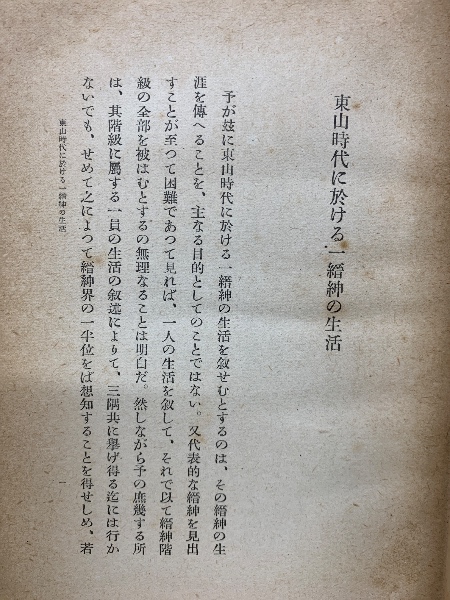 東山時代に於ける一縉紳の生活
予が玆に東山時代に於ける一縉紳の生活を叙せむとするのは、その縉紳の生
涯を傳へることを、主なる目的としてのことではない。又代表的な縉紳を見出
すことが至つて困難であつて見れば、一人の生活を叙して、それで以て縉紳階
級の全部を被はむとするの無理なることは明白だ。然しながら予の庶幾する所
は、其階級に屬する一員の生活の叙述によりて、三隅共に擧げ得る迄には行か
ないでも、せめて之によつて縉紳界の一半位をば想知することを得せしめ、若
東山時代に於ける一縉紳の生活
一